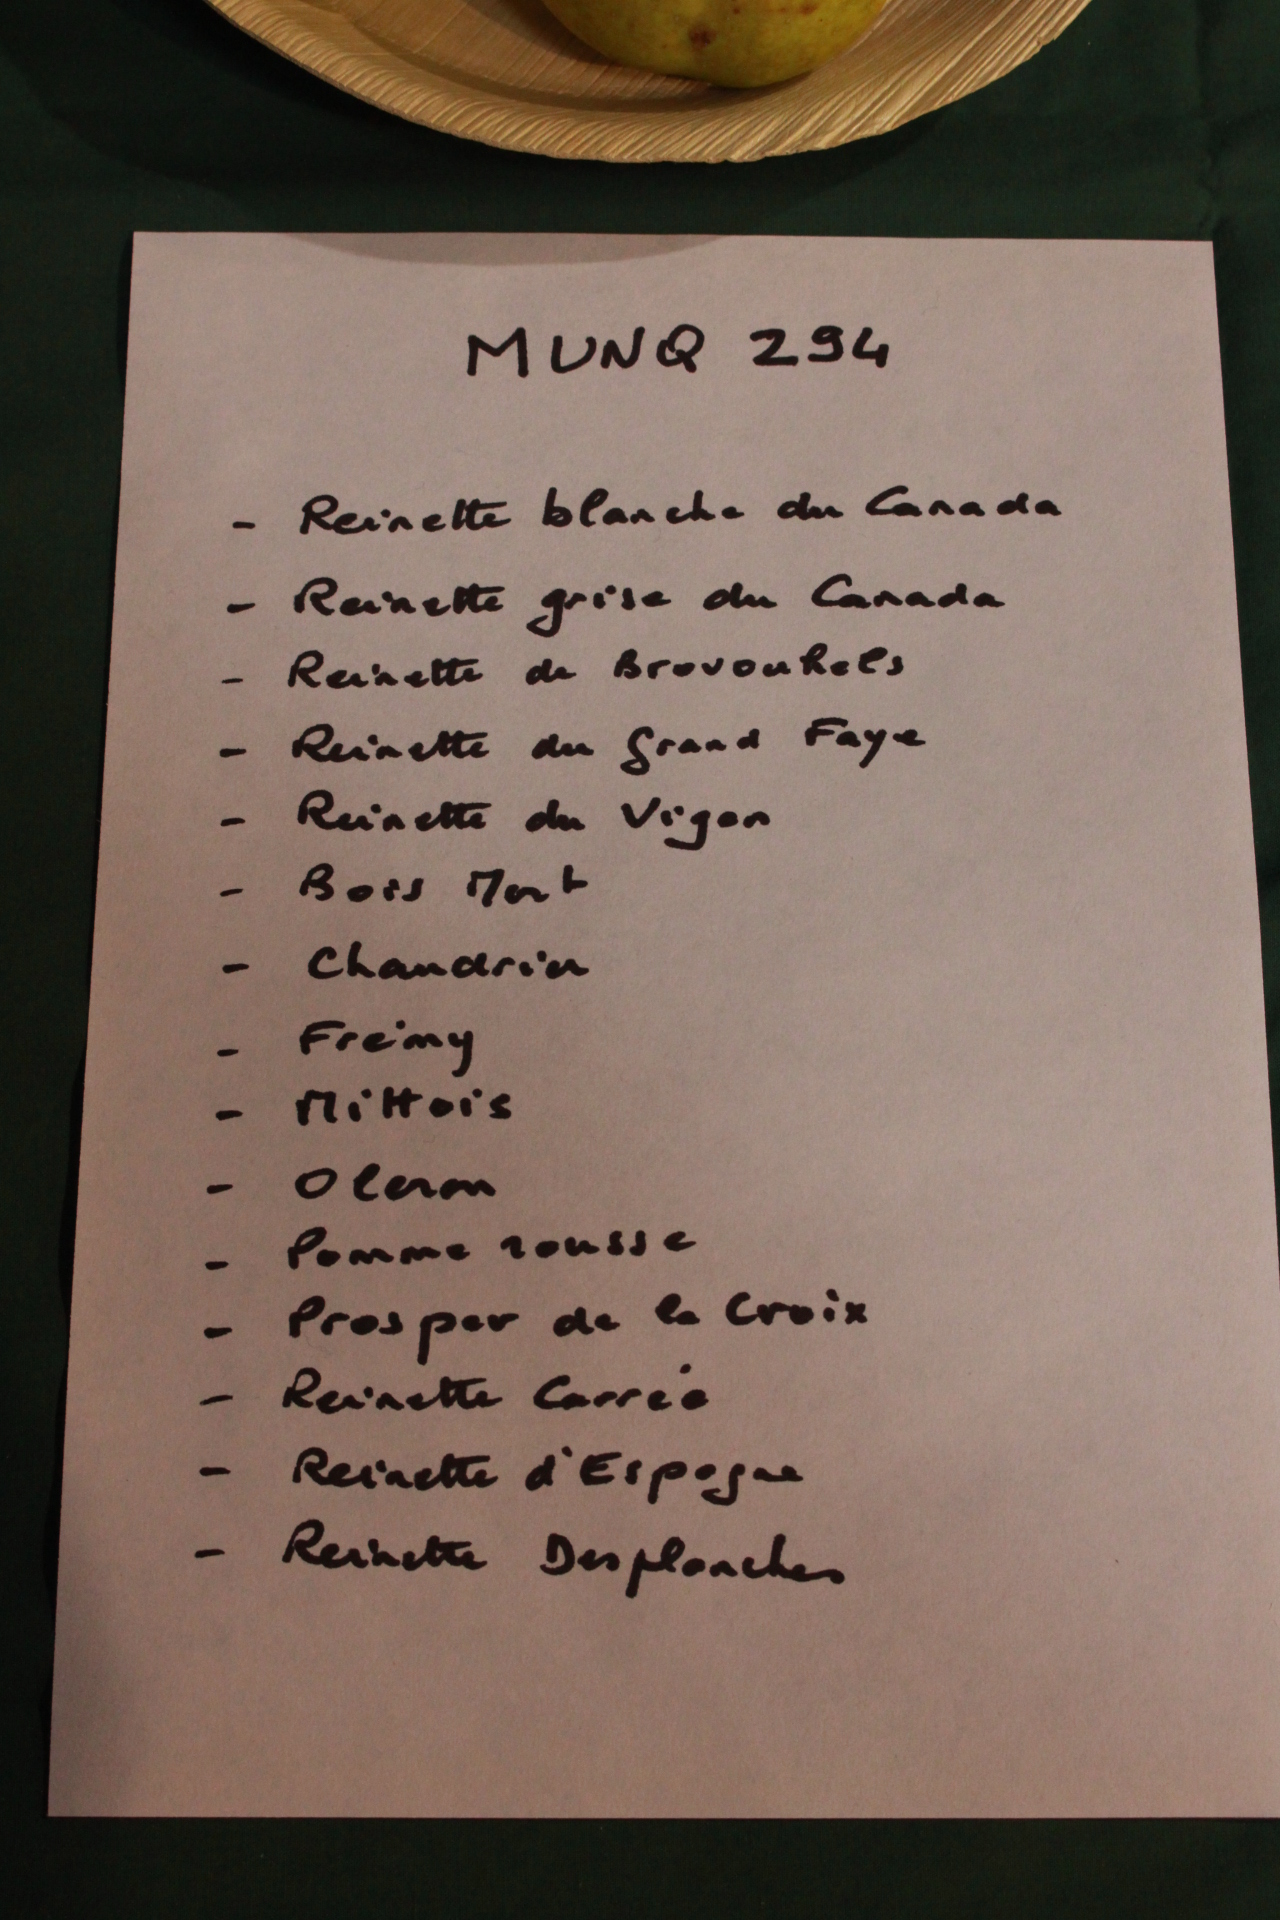 MUNQ 294
- Reinette blanche du Canada
- Reinette grise du Canada
- Reinette de Brovoukels
- Reinette du Grand Faye
- Reinette du Vigon
- Bois Mort
- Chandrier
- Frémy
- Mittois
- Oleron
- Pomme rousse
- Prosper de la Croix
- Reinette Carrée
- Reinette d'Espagne
- Reinette Desplanches